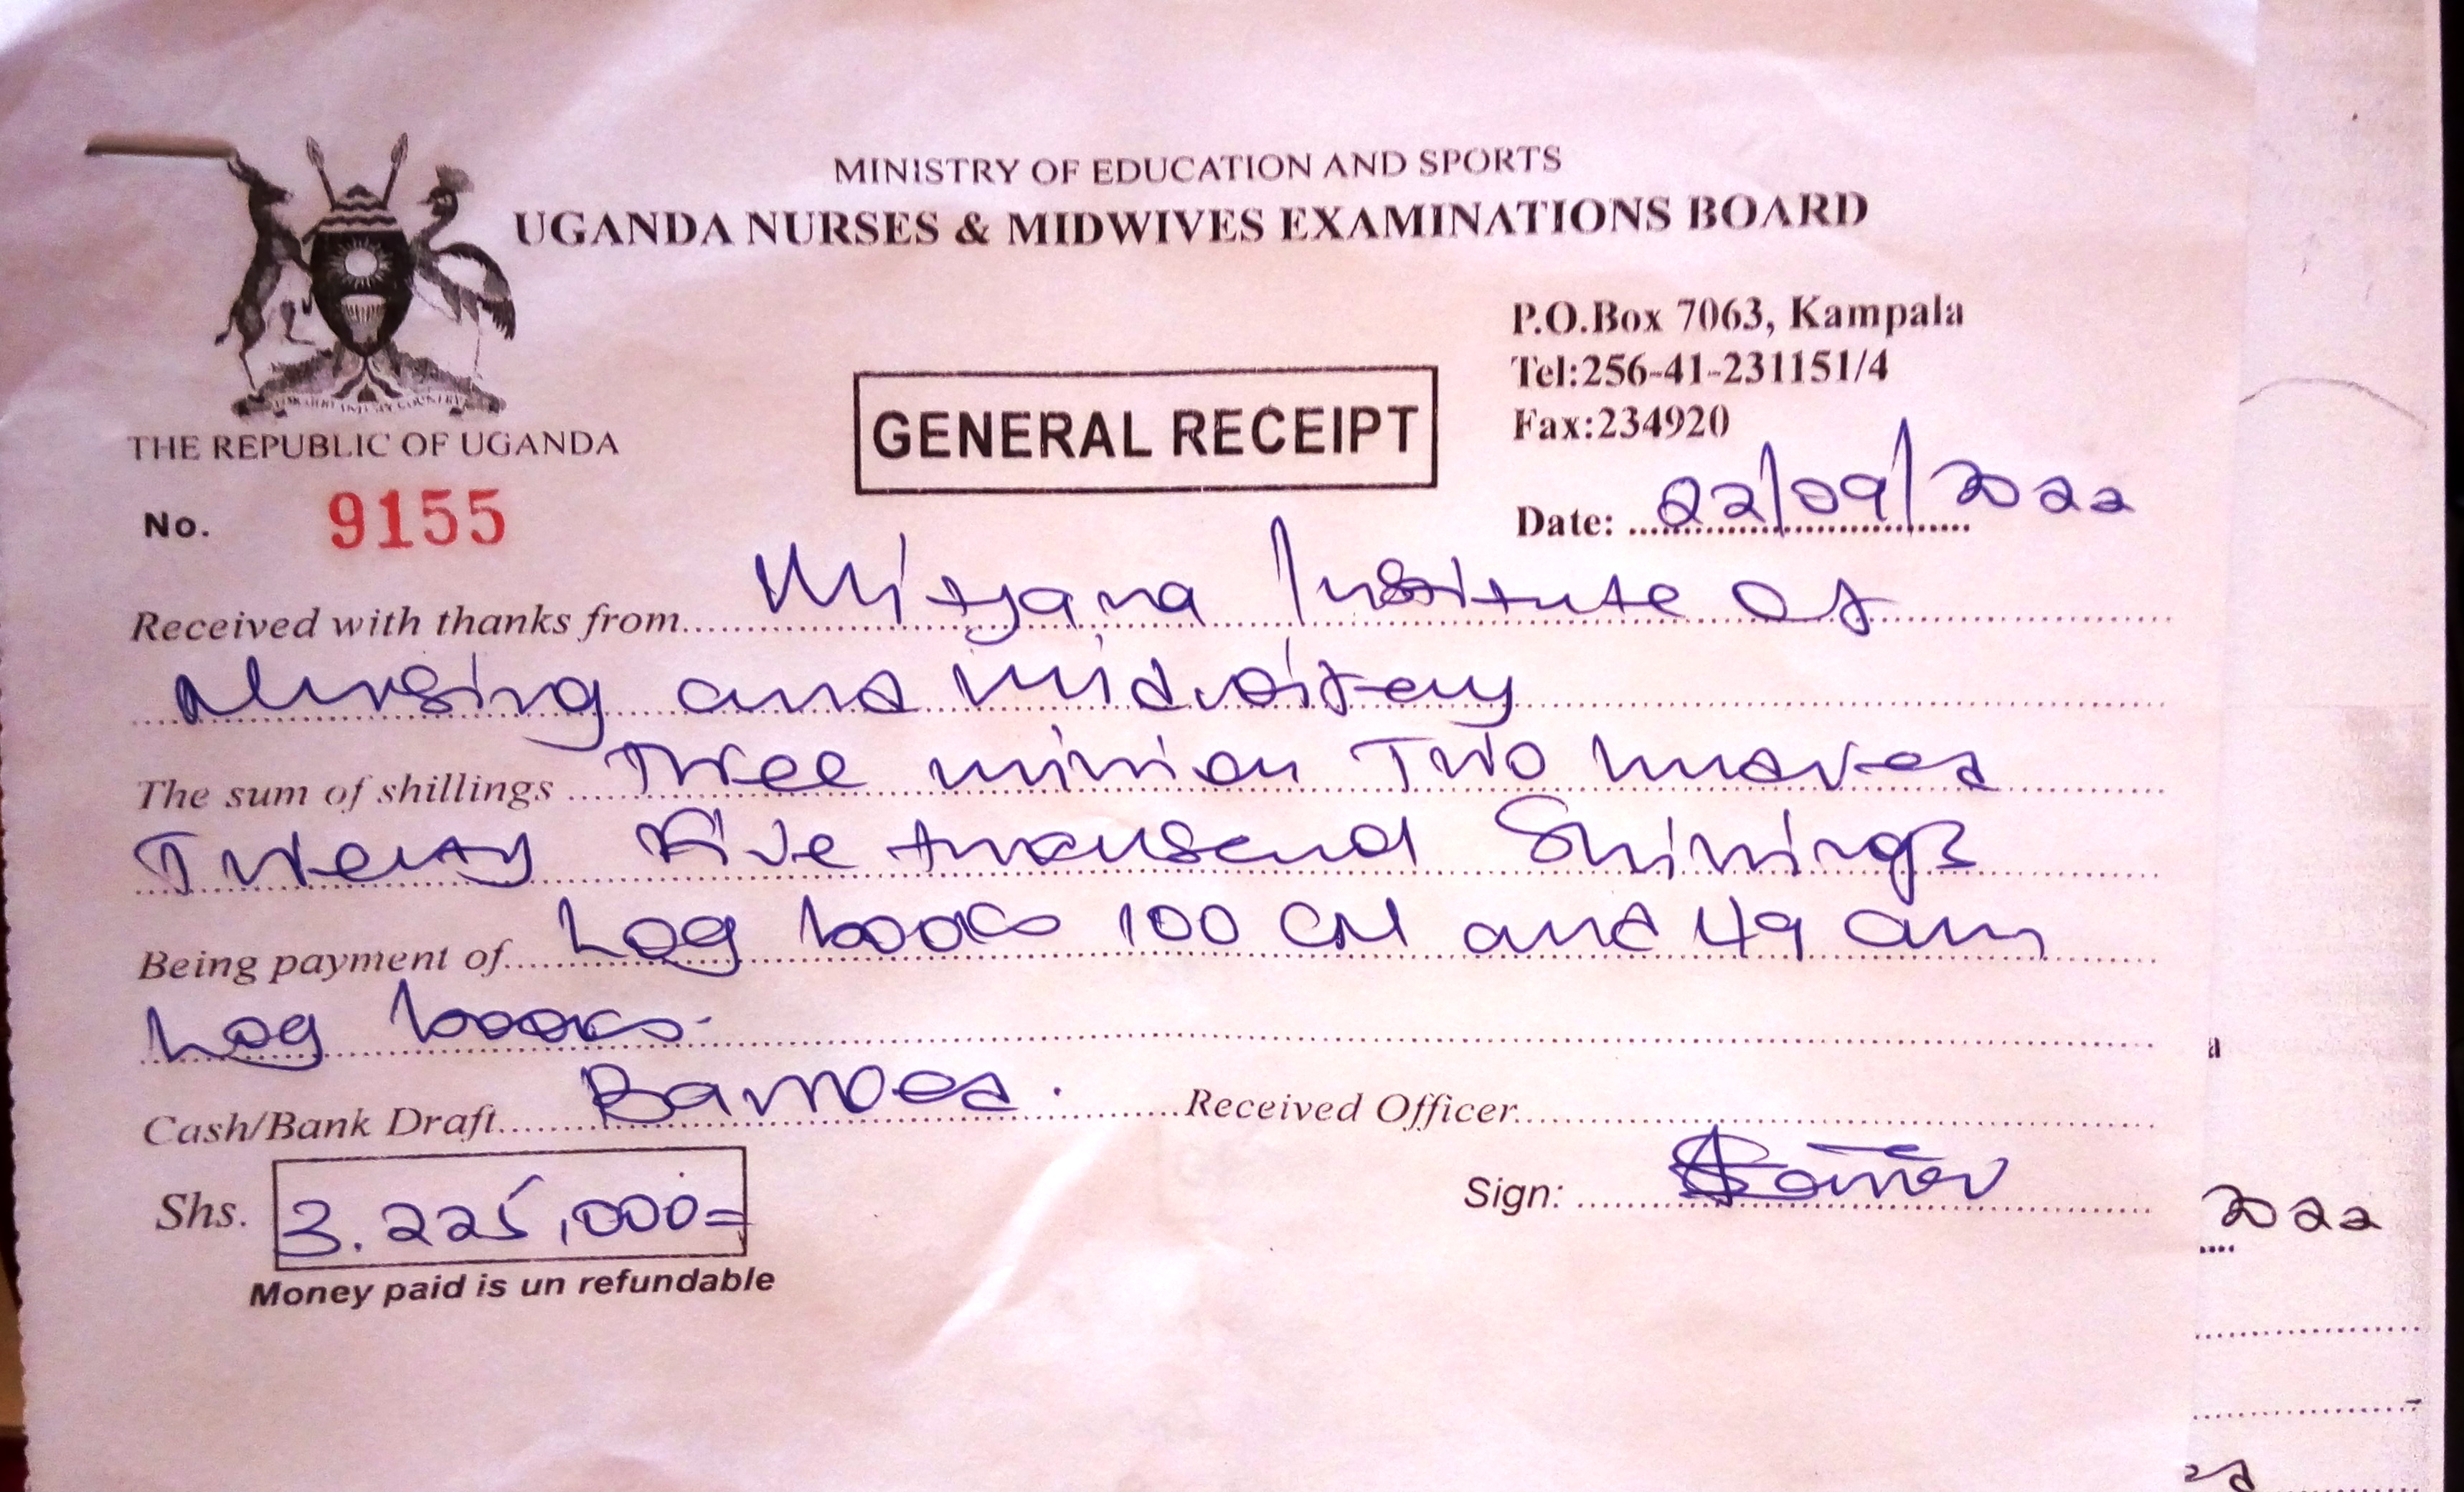 MINISTRY OF EDUCATION AND SPORTS
UGANDA NURSES & MIDWIVES EXAMINATIONS BOARD
P.O.Box 7063, Kampala
Tel:256-41-231151/4
Fax:234920
GENERAL RECEIPT
THE REPUBLIC OF UGANDA
No. 9155
Date: 22/09/2022
Received with thanks from Mityana Institute of
Nursing and midwifery
The sum of shillings Three million Two hundred
Twenty Five thousand Shillings
Being payment of Log books 100 CM and 49 am
Log books.
Cash/Bank Draft Banked. Received Officer
Shs. 3.225,000=
Sign:
Money paid is un refundable
a
2022